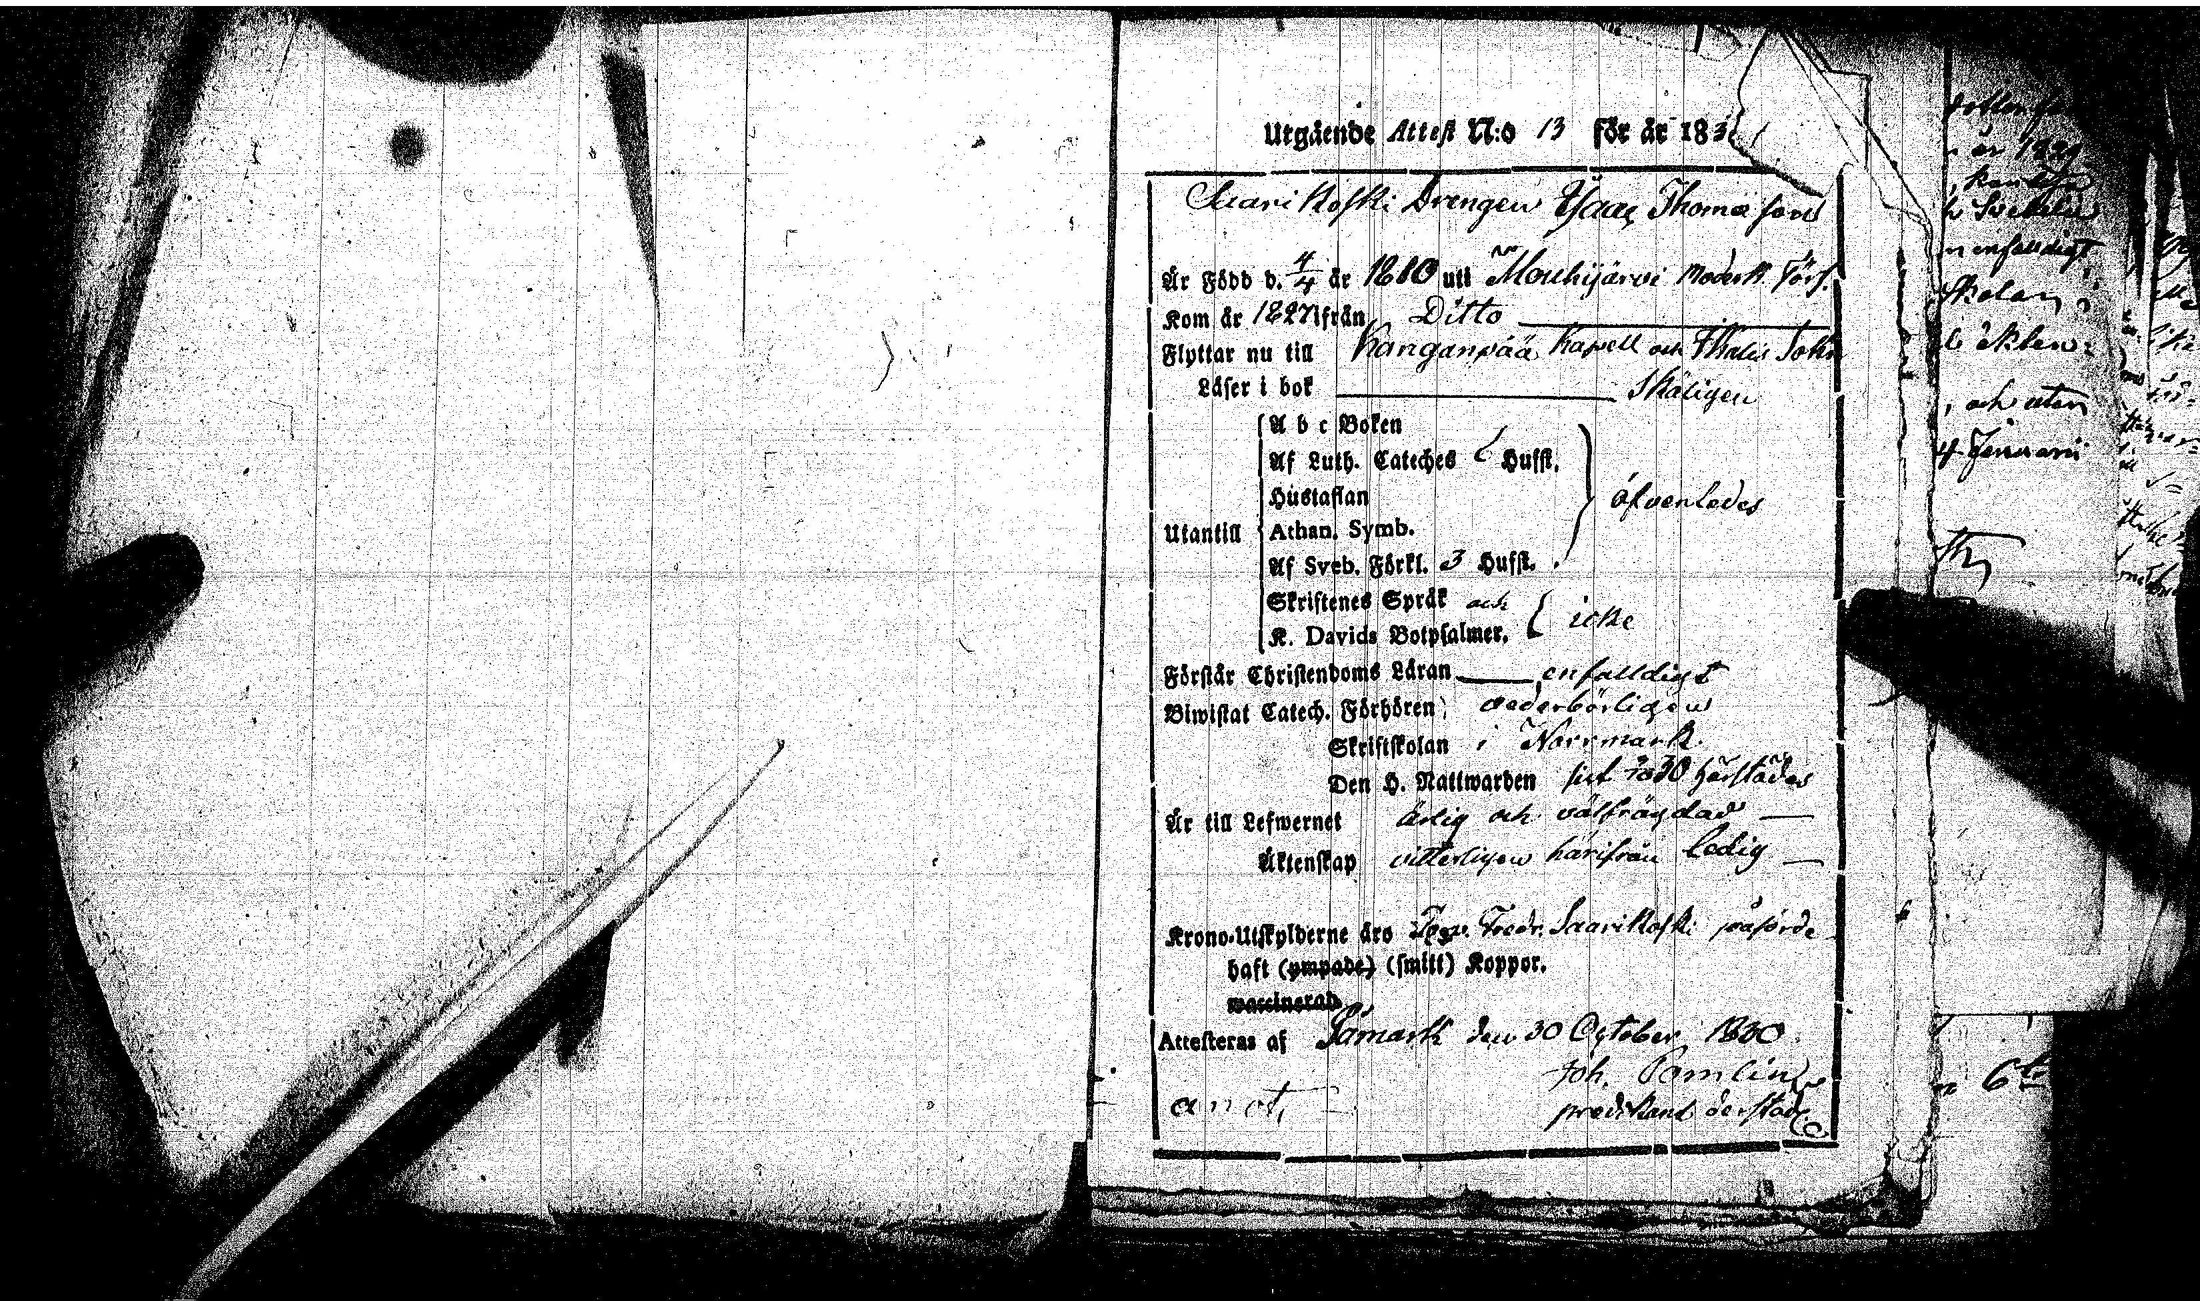 Utgående Attest N:o 13 för år 183
Saarikoski Drengen Isaac Thomæ son
Är Född d. 4/4 år 1810 uti Mouhijärvi Moderk. Förs.
Kom år 1827 ifrån Ditto
Flyttar nu till Kanganpää Kapell och
Läser i bok Skäligen
A b c Boken
Af Luth. Cateches Hufst.
Hustaflan öfvenledes
Utantill Athan. Symb.
Af Sveb. Förkl. 3 Hufst.
Skriftenes Språk och
K. Davids Botpsalmer. icke
Förstår Christendoms Läran enfalldigt
Biwistat Catech. Förhören vederbörligen
Skriftskolan i Norrmark.
Den H. Nattwarden sist härstädes
Är till Lefwernet ärlig och välfrägdad
Äktenskap vitterligen härifrån ledig
Krono-Utskylderne äro Fredr. Saarikoski påförde
haft (ympade) (smitt) Koppor.
waccinerad
Attesteras af Påmark den 30 October 1830.
Joh. Pomlin
anot, predikant derstäd.
år 1829
enfalldigt
, och uten
4 Januarii